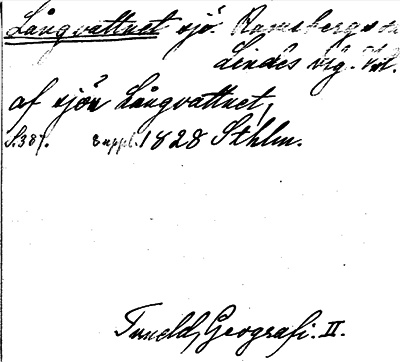 Långvattnet sjö. Ramsbergs sn
Lindes vlg. Vstl.
af sjön Långvattnet,
S.387. Suppl. 1828 Sthlm.
Tuneld, Geografi. II.